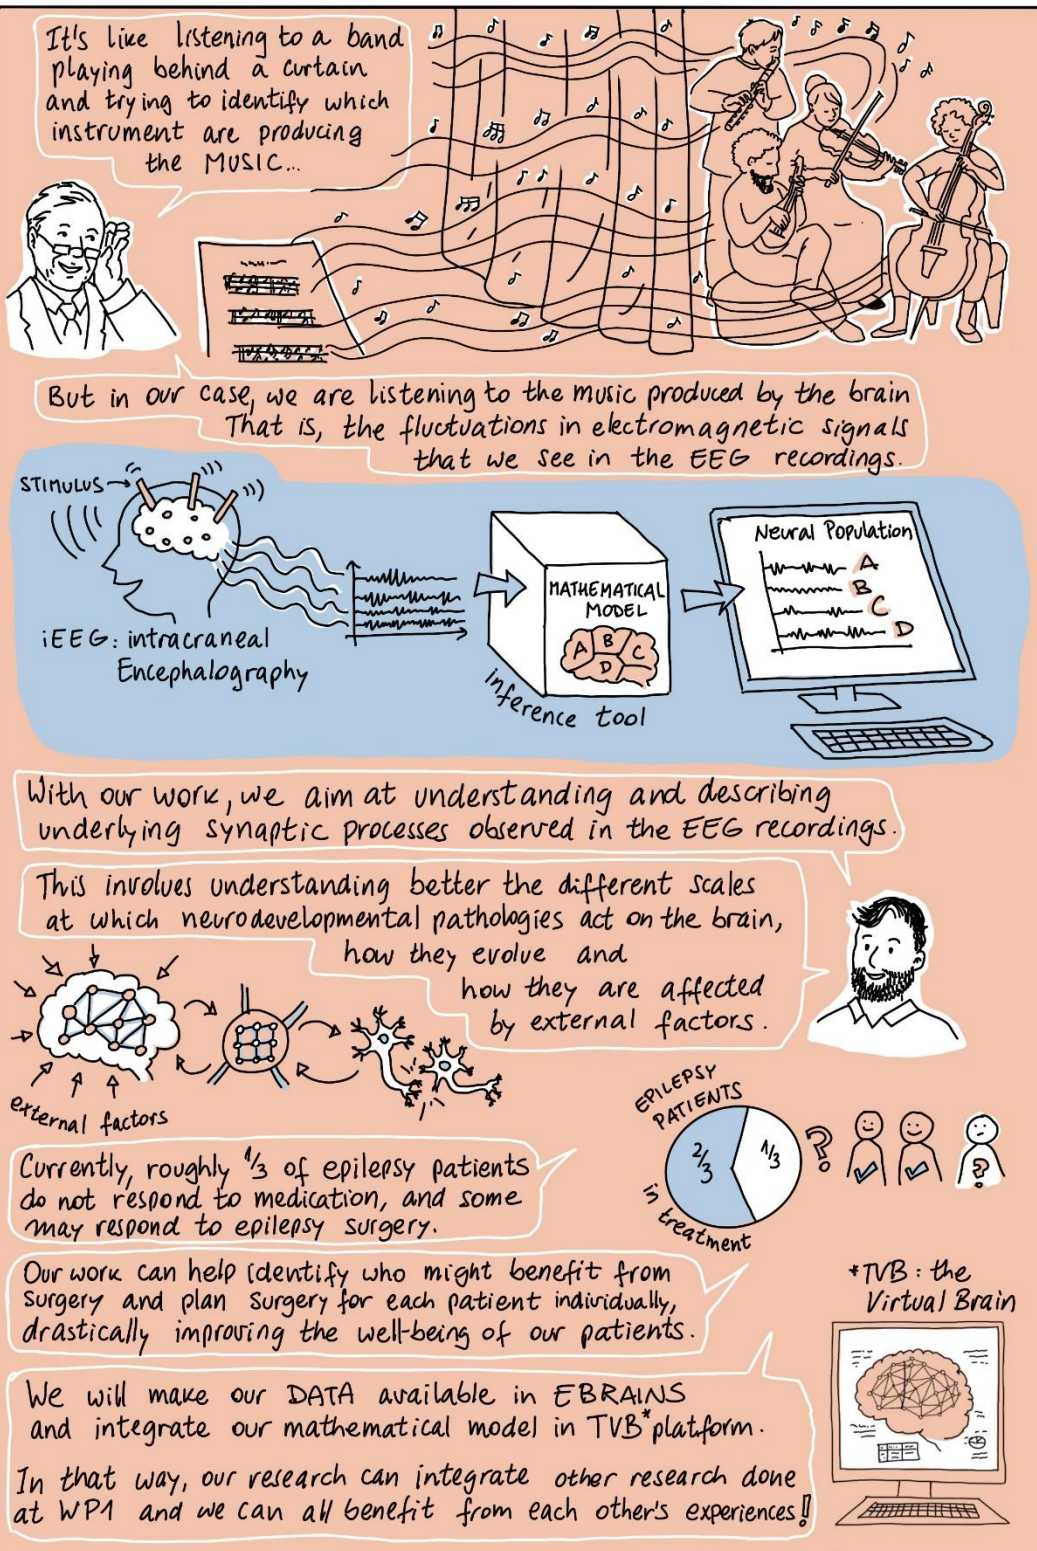 It's like listening to a band
playing behind a curtain
and trying to identify which
instrument are producing
the MUSIC...
But in our case, we are listening to the music produced by the brain
That is, the fluctuations in electromagnetic signals
that we see in the EEG recordings.
STIMULUS
iEEG: intracraneal
Encephalography
MATHEMATICAL
MODEL
A B C
D
inference tool
Neural Population
A
B
C
D
With our work, we aim at understanding and describing
underlying synaptic processes observed in the EEG recordings.
This involves understanding better the different scales
at which neurodevelopmental pathologies act on the brain,
how they evolve and
how they are affected
by external factors.
external factors
EPILEPSY
PATIENTS
2/3
1/3
in treatment
?
?
Currently, roughly 1/3 of epilepsy patients
do not respond to medication, and some
may respond to epilepsy surgery.
Our work can help identify who might benefit from
surgery and plan surgery for each patient individually,
drastically improving the well-being of our patients.
*TVB: the
Virtual Brain
We will make our DATA available in EBRAINS
and integrate our mathematical model in TVB* platform.
In that way, our research can integrate other research done
at WP1 and we can all benefit from each other's experiences!